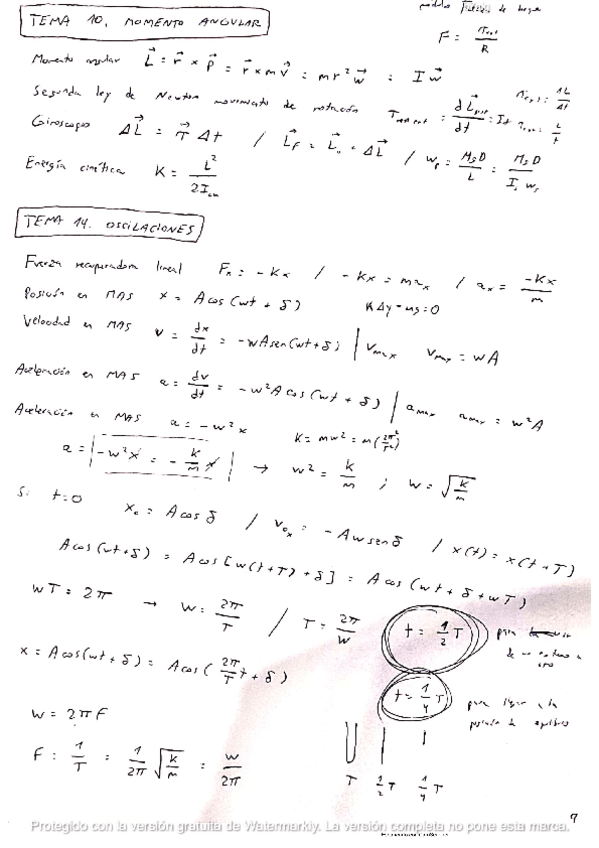 TEMA 10. MOMENTO ANGULAR
F = τ / R
Momento angular L⃗ = r⃗ x p⃗ = r⃗ x m v⃗ = m r² w⃗ = I w⃗
Segunda ley de Newton movimiento de rotación τ = dL⃗ / dt
Giroscopos ΔL⃗ = τ⃗ Δt / L⃗f = L⃗o + ΔL⃗ / wp = MgD / L = MgD / Is ws
Energía cinética K = L² / 2Icm
TEMA 14. OSCILACIONES
Fuerza recuperadora lineal Fx = -Kx / -Kx = max / ax = -Kx / m
Posición en MAS x = A cos(wt + δ) KΔy - mg = 0
Velocidad en MAS v = dx/dt = -wA sen(wt + δ) | vmax vmax = wA
Aceleración en MAS a = dv/dt = -w²A cos(wt + δ) | amax amax = w²A
Aceleración en MAS a = -w²x K = mw² = m(2π²/T²)
a = | -w²x = - k/m x | → w² = k/m ; w = √(k/m)
Si t=0 xo = A cos δ / vox = -Aw sen δ / x(t) = x(t+T)
A cos(wt+δ) = A cos[w(t+T)+δ] = A cos(wt + δ + wT)
wT = 2π → w = 2π/T / T = 2π/w
t = 1/2 T para
x = A cos(wt + δ) = A cos(2π/T t + δ)
t = 1/4 T para llegar a la
posición de equilibrio
w = 2πF
F = 1/T = 1/2π √(k/m) = w/2π
T 1/2 T 1/4 T
9
Protegido con la versión gratuita de Watermarkly. La versión completa no pone esta marca.